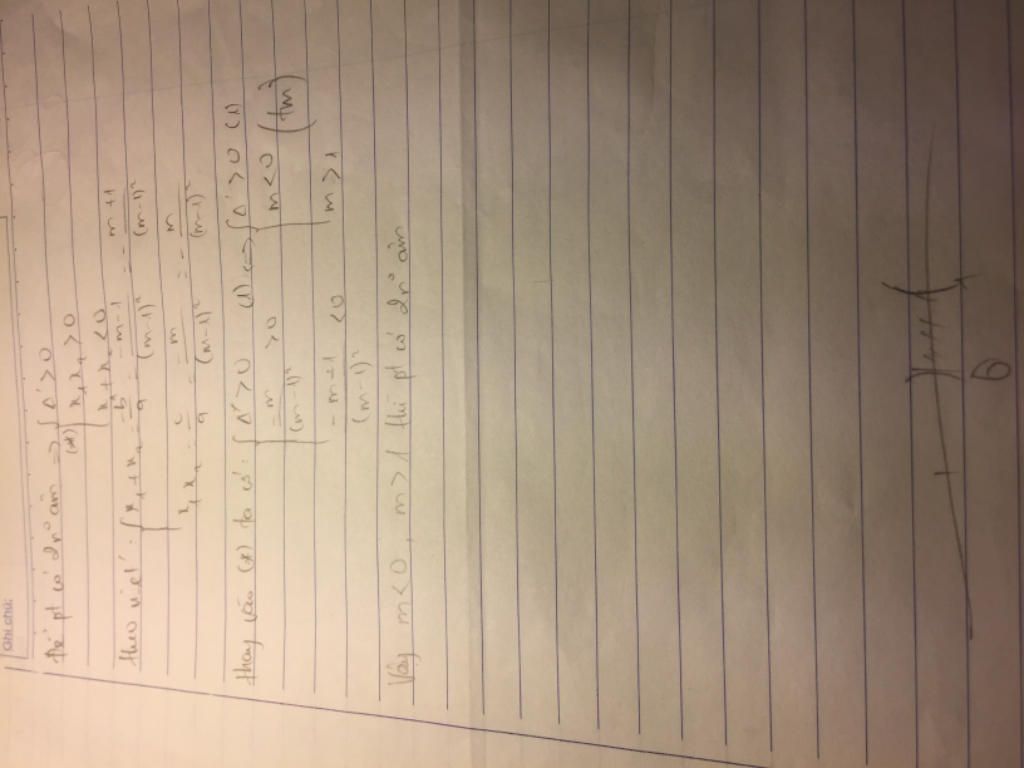 Ghi chú:
Để pt có 2n⁰ âm => { Δ' > 0
(*) x₁x₂ > 0
x₁ + x₂ < 0
theo viet: { x₁ + x₂ = -b/a = -m-1/(m-1)² = - m+1/(m-1)²
x₁x₂ = c/a = -m/(m-1)² = - m/(m-1)²
thay vào (*) ta có: { Δ' > 0 (1) <=> { Δ' > 0 (1)
-m/(m-1)² > 0 m < 0 (tm)
- m+1/(m-1)² < 0 m > 1
Vậy m < 0, m > 1 thì pt có 2n⁰ âm